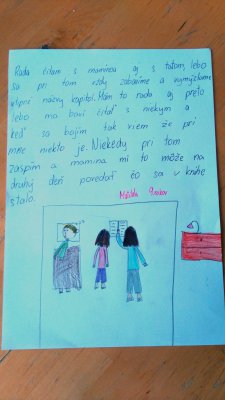 Rada čítam s maminou aj s tatom, lebo
sa pri tom vždy zabavíme a vymýšľame
vtipné názvy kapitol. Mám to rada aj preto
lebo ma baví čítať s niekym a
keď sa bojím tak viem že pri
mne niekto je. Niekedy pri tom
zaspím a mamina mi to môže na
druhý deň povedať čo sa v knihe
stalo.
Matilda 9 rokov